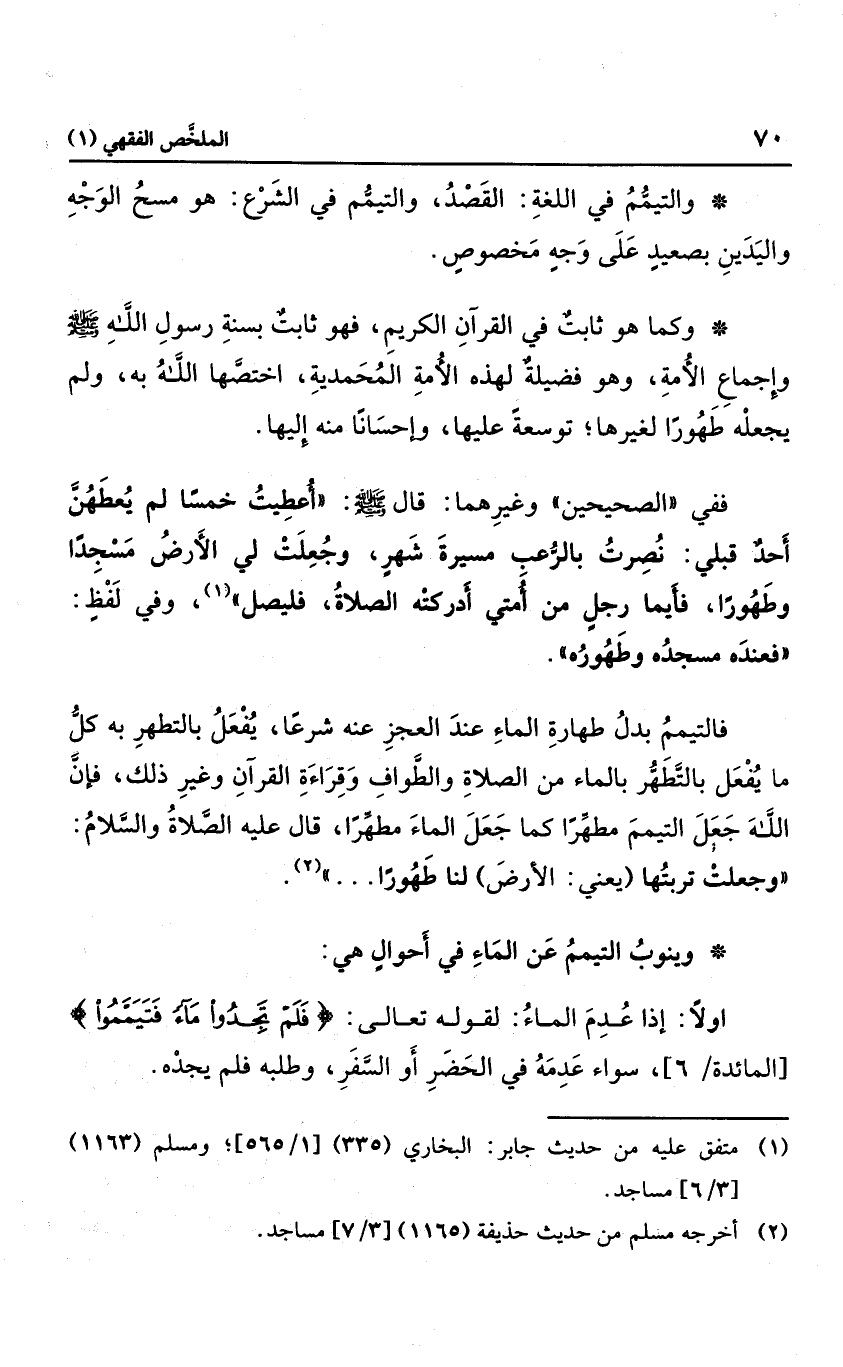 ٧٠ الملخَّص الفقهي (١)
* والتيمُّمُ في اللغةِ: القَصْدُ، والتيمُّم في الشَرْع: هو مسحُ الوَجْهِ
واليَدَينِ بصعيدٍ عَلَى وَجهٍ مَخصوصٍ.
* وكما هو ثابتٌ في القرآنِ الكريمِ، فهو ثابتٌ بسنةِ رسولِ اللَّهِ ﷺ
وإجماعِ الأُمةِ، وهو فضيلةٌ لهذه الأُمةِ المُحَمديةِ، اختصَّها اللَّهُ به، ولم
يجعلْه طَهُورًا لغيرها؛ توسعةً عليها، وإحسَانًا منه إليها.
ففي «الصحيحين» وغيرِهما: قال ﷺ: «أُعطِيتُ خمسًا لم يُعطَهُنَّ
أَحدٌ قبلي: نُصِرتُ بالرُّعبِ مسيرةَ شَهرٍ، وجُعِلَتْ لي الأَرضُ مَسْجِدًا
وطَهُورًا، فأَيما رجلٍ من أُمتي أَدركتْه الصلاةُ، فليصل»(١)، وفي لَفْظٍ:
«فعندَه مسجدُه وطَهُورُه».
فالتيممُ بدلُ طهارةِ الماءِ عندَ العجزِ عنه شرعًا، يُفْعَلُ بالتطهرِ به كلُّ
ما يُفْعَل بالتَّطَهُّر بالماء من الصلاةِ والطَّوافِ وَقِرَاءَةِ القرآنِ وغيرِ ذلك، فإنَّ
اللَّهَ جَعَلَ التيممَ مطهِّرًا كما جَعَلَ الماءَ مطهِّرًا، قال عليه الصَّلاةُ والسَّلامُ:
«وجعلتْ تربتُها (يعني: الأرضَ) لنا طَهُورًا...»(٢).
* وينوبُ التيممُ عَن المَاءِ في أَحوالٍ هي:
اولاً: إذا عُـدِمَ المـاءُ: لقـولـه تعـالـى: ﴿فَلَمۡ تَجِدُواْ مَآءٗ فَتَيَمَّمُواْ﴾
[المائدة/ ٦]، سواء عَدِمَهُ في الحَضَرِ أَو السَّفَرِ، وطلبه فلم يجدْه.
(١) متفق عليه من حديث جابر: البخاري (٣٣٥) [١/ ٥٦٥]؛ ومسلم (١١٦٣)
[٣/ ٦] مساجد.
(٢) أخرجه مسلم من حديث حذيفة (١١٦٥) [٣/ ٧] مساجد.